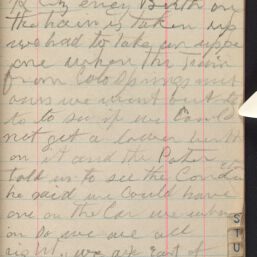 every Birth on
the train is taken up
we had to take an upper
one when the train
from Colo Springs met
ours we went out
to to see if we could
not get a lower birth
on it and the Porter
told us to see the Condu
he said we could have
one on the Car we were
on So we are all
right, we are East of
S
T
U